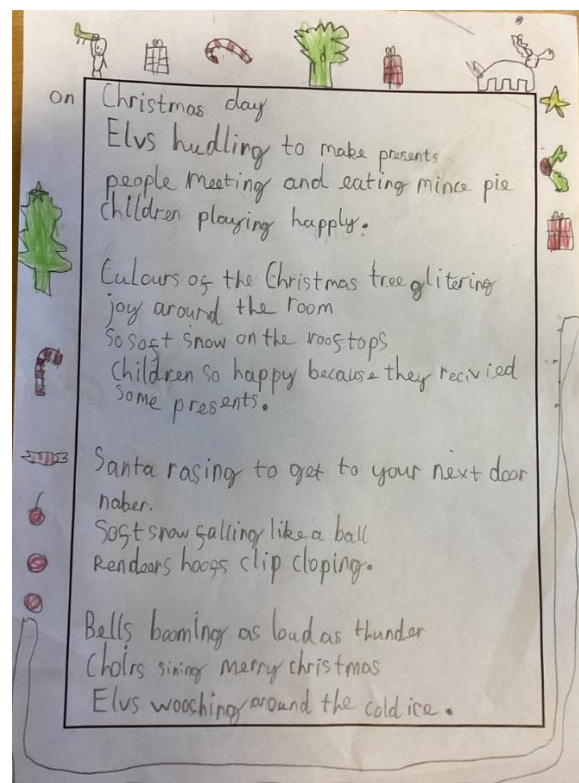 on Christmas day
Elvs hudling to make presents
people meeting and eating mince pie
children playing happly.
Culours of the Christmas tree glitering
joy around the room
So soft snow on the rooftops
Children so happy because they recivied
some presents.
Santa rasing to get to your next door
naber.
Soft snow falling like a ball
Rendears hoofs clip cloping.
Bells booming as loud as thunder
Choirs sining merry christmas
Elvs wooshing around the cold ice.